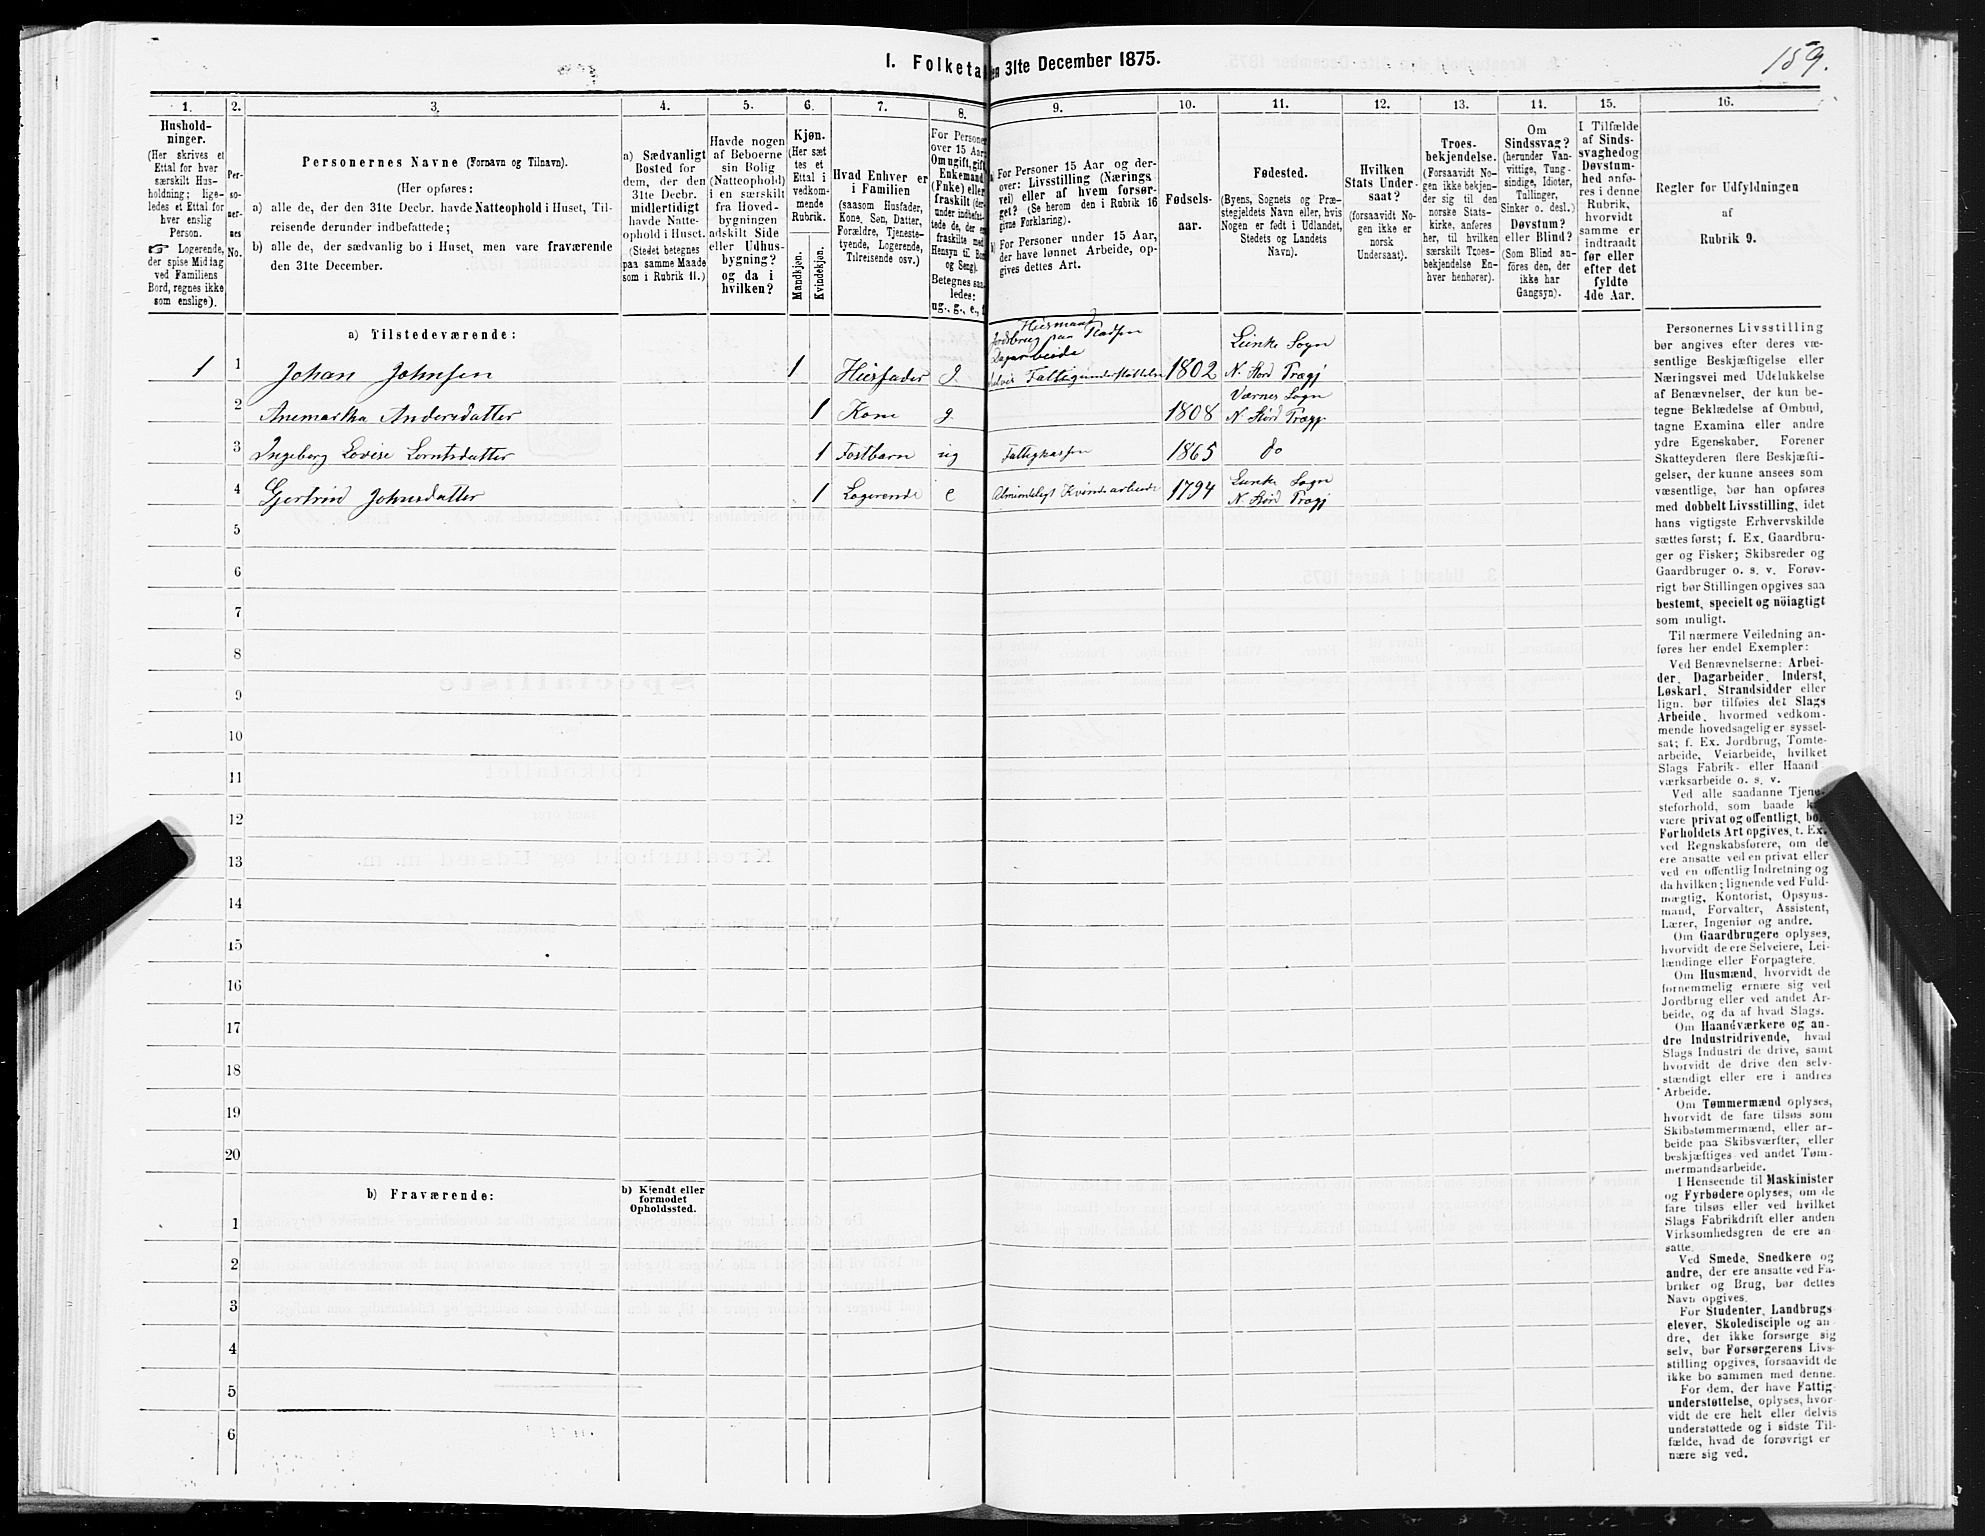 159.
I. Folketal den 31te December 1875.
1. 2. 3. 4. 5. 6. 7. 8. 9. 10. 11. 12. 13. 14. 15. 16.
Hushold-
ninger.
(Her skrives et
Ettal for hver
særskilt Hus-
holdning; lige-
ledes et Ettal for
hver enslig
Person.
☞ Logerende,
der spise Middag
ved Familiens
Bord, regnes ikke
som enslige).
Per-
so-
ner-
nes
No.
Personernes Navne (Fornavn og Tilnavn).
(Her opføres:
a) alle de, der den 31te Decbr. havde Natteophold i Huset, Til-
reisende derunder indbefattede;
b) alle de, der sædvanlig bo i Huset, men vare fraværende
den 31te December.
a) Sædvanligt
Bosted for
dem, der den
31te Decbr.
midlertidigt
havde Natte-
ophold i Huset.
(Stedet betegnes
paa samme Maade
som i Rubrik 11.)
Havde nogen
af Beboerne
sin Bolig
(Natteophold)
i en særskilt
fra Hoved-
bygningen
adskilt Side
eller Udhus-
bygning?
og da i
hvilken?
Kjøn.
(Her sæt
tes et
Ettal i
vedkom-
mende
Rubrik.
Mandkjøn.
Kvindekjøn.
Hvad Enhver er
i Familien
(saasom Husfader,
Kone, Søn, Datter,
Forældre, Tjeneste-
tyende, Logerende,
Tilreisende osv.)
For Personer
over 15 Aar:
Om ugift, gift,
Enkemand
(Enke) eller
fraskilt (der-
under indbefat-
tede de, der ere
fraskilte med
Hensyn til Bord
og Seng).
Betegnes saa-
ledes:
ug., g., e., f.
a) For Personer 15 Aar og der-
over: Livsstilling (Nærings
vei) eller af hvem forsør-
get? (Se herom den i Rubrik 16
givne Forklaring).
b) For Personer under 15 Aar,
der have lønnet Arbeide, op-
gives dettes Art.
Fødsels-
aar.
Fødested.
(Byens, Sognets og Præ-
stegjeldets Navn eller, hvis
Nogen er født i Udlandet,
Stedets og Landets
Navn).
Hvilken
Stats Under-
saat?
(forsaavidt No-
gen ikke er
norsk
Undersaat).
Troes-
bekjendelse.
(Forsaavidt No-
gen ikke bekjen-
der sig til den
norske Stats-
kirke, anføres
her, til hvilken
særskilt Troes-
bekjendelse En-
hver henhører).
Om
Sindssvag?
(herunder Van-
vittige, Tung-
sindige, Idioter,
Tullinger,
Sinker o. desl.)
Døvstum?
eller Blind?
(Som Blind an-
føres den, der
ikke har
Gangsyn).
I Tilfælde
af Sinds-
svaghed og
Døvstum-
hed anfø-
res i denne
Rubrik,
hvorvidt
samme er
indtraadt
før eller
efter det
fyldte
4de Aar.
Regler for Udfyldningen
af
Rubrik 9.
a) Tilstedeværende:
Husmand
Jordbrug paa Pladsen
Dagarbeide
Leinke Sogn
1 1 Johan Johnsen 1 Husfader g. delvis Fattigunderstøttelse 1802 N. Størd Prægj
Værnes Sogn
2 Anemartha Andersdatter 1 Kone g 1808 N. Størd Prægj
3 Ingeborg Lovise Lorntsdatter 1 Fostbarn ug Fattigkassen 1865 do
Leinke Sogn
4 Gjertrud Johnsdatter 1 Logerende e Almindeligt Kvindearbeide 1794 N. Størd Prægj
5
6
7
8
9
10
11
12
13
14
15
16
17
18
19
20
b) Fraværende:
b) Kjendt eller
formodet
Opholdssted.
1
2
3
4
5
6
Personernes Livsstilling
bør angives efter deres væ-
sentlige Beskjæftigelse eller
Næringsvei med Udelukkelse
af Benævnelser, der kun be-
tegne Beklædelse af Ombud,
tagne Examina eller andre
ydre Egenskaber. Forener
Skatteyderen flere Beskjæfti-
gelser, der kunne ansees som
væsentlige, bør han opføres
med dobbelt Livsstilling, idet
hans vigtigste Erhvervskilde
sættes først; f. Ex. Gaardbru-
ger og Fisker; Skibsreder og
Gaardbruger o. s. v. Forøv-
rigt bør Stillingen opgives saa
bestemt, specielt og nöiagtigt
som muligt.
Til nærmere Veiledning an-
føres her endel Exempler:
Ved Benævnelserne: Arbei-
der, Dagarbeider, Inderst,
Løskarl, Strandsidder eller
lign. bør tilføies det Slags
Arbeide, hvormed vedkom-
mende hovedsagelig er syssel-
sat; f. Ex. Jordbrug, Tomte-
arbeide, Veiarbeide, hvilket
Slags Fabrik- eller Haand-
værksarbeide o. s. v.
Ved alle saadanne Tjene-
steforhold, som baade kan
være privat og offentligt, bør
Forholdets Art opgives, t. Ex.
ved Regnskabsførere, om de
ere ansatte ved en privat eller
ved en offentlig Indretning og
da hvilken; lignende ved Fuld-
mægtig, Kontorist, Opsyns-
mand, Forvalter, Assistent,
Lærer, Ingeniør og andre.
Om Gaardbrugere oplyses,
hvorvidt de ere Selveiere, Lei-
lændinge eller Forpagtere.
Om Husmænd, hvorvidt de
fornemmelig ernære sig ved
Jordbrug eller ved andet Ar-
beide, og da af hvad Slags.
Om Haandværkere og an-
dre Industridrivende, hvad
Slags Industri de drive, samt
hvorvidt de drive den selv-
stændigt eller ere i andres
Arbeide.
Om Tømmermænd oplyses,
hvorvidt de fare tilsøs som
Skibstømmermænd, eller ar-
beide paa Skibsværfter, eller
beskjæftiges ved andet Tøm-
mermandsarbeide.
I Henseende til Maskinister
og Fyrbødere oplyses, om de
fare tilsøs eller ved hvilket
Slags Fabrikdrift eller anden
Virksomhedsgren de ere an-
satte.
Ved Smede, Snedkere og
andre, der ere ansatte ved Fa-
briker og Brug, bør dettes
Navn opgives.
For Studenter, Landbrugs
elever, Skoledisciple og an-
dre, der ikke forsørge sig
selv, bør Forsørgerens Livs-
stilling opgives, forsaavidt de
ikke bo sammen med denne.
For dem, der have Fattig-
understøttelse, oplyses, hvor-
vidt de ere helt eller delvis
understøttede og i sidste Til-
fælde, hvad de forøvrigt er-
nære sig ved.